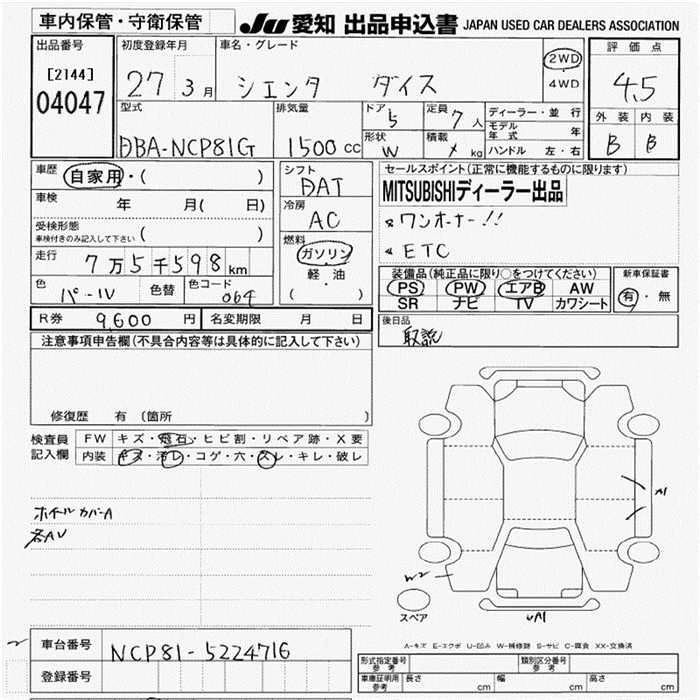 車内保管・守衛保管
JU 愛知 出品申込書 JAPAN USED CAR DEALERS ASSOCIATION
出品番号
[2144]
04047
初度登録年月
27 3月
車名・グレード
シエンタ ダイス
2WD
・
4WD
評価点
4.5
外装 内装
B B
型式
DBA-NCP81G
排気量
1500 cc
ドア
5
定員
7人
形状
W
積載
kg
ディーラー・並行
モデル年式 年
ハンドル 左・右
車歴
自家用・( )
車検
年 月( 日)
受検形態
車検付きのみ記入して下さい ( )
走行
7万5千598km
色
パール
色替
色コード
064
シフト
DAT
冷房
AC
燃料
ガソリン
・
軽油
( )
セールスポイント(正常に機能するものに限ります)
MITSUBISHIディーラー出品
ワンオーナー!!
ETC
装備品(純正品に限り○をつけてください)
PS PW エアB AW
SR ナビ TV カワシート
新車保証書
有・無
後日品
取説
R券 9,600 円
名変期限 月 日
注意事項申告欄(不具合内容等は具体的に記入して下さい)
修復歴 有(箇所 )
検査員
記入欄
FW キズ・飛石・ヒビ割・リペア跡・X要
内装 キズ・汚レ・コゲ・穴・スレ・キレ・破レ
ホイールカバーA
各AU
A1
W2
スペア
UA1
A-キズ E-エクボ U-凹み W-補修跡 S-サビ C-腐食 XX-交換済
車台番号
NCP81-5224716
登録番号
形式指定番号
参考
類別区分番号
参考
車庫証明用
参考
長さ cm
幅 cm
高さ cm